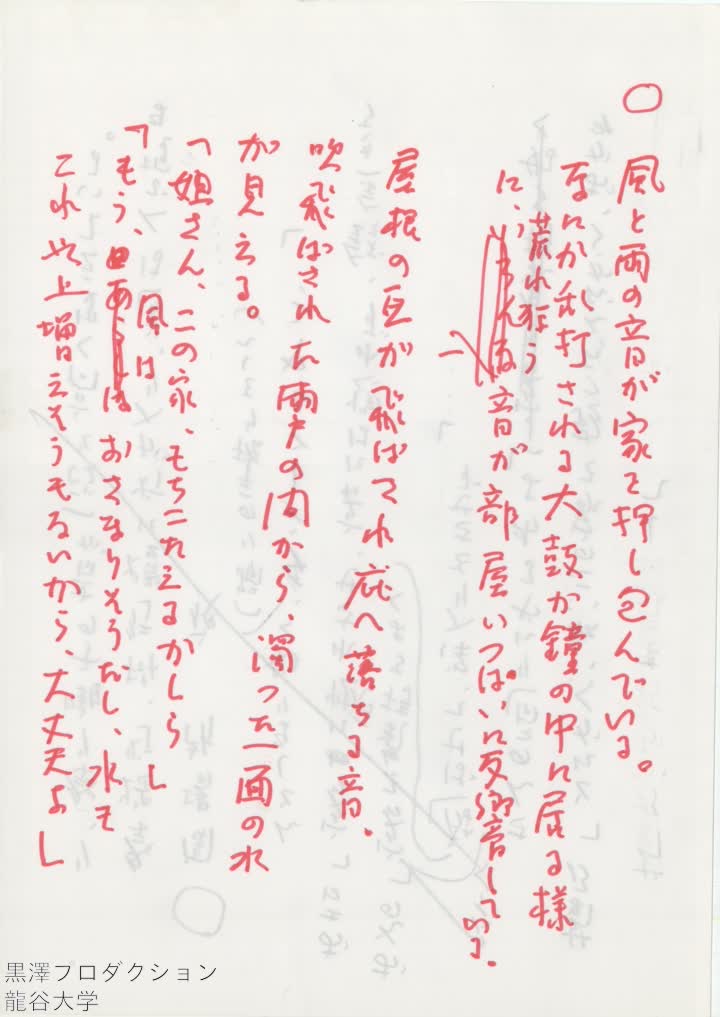 ○ 風と雨の音が家を押し包んでいる。
なにか乱打される大鼓か鐘の中に居る様
に、荒れ狂う音が部屋いっぱいに反響している。
屋根の瓦が飛ばされ庇へ落ちる音。
吹飛ばされた雨戸の間から、濁った一面の水
が見える。
「姐さん、この家、もちこたえるかしら」
「もう、風はおさまりそうだし、水も
これ以上増えそうもないから、大丈夫よ」
黒澤プロダクション
龍谷大学